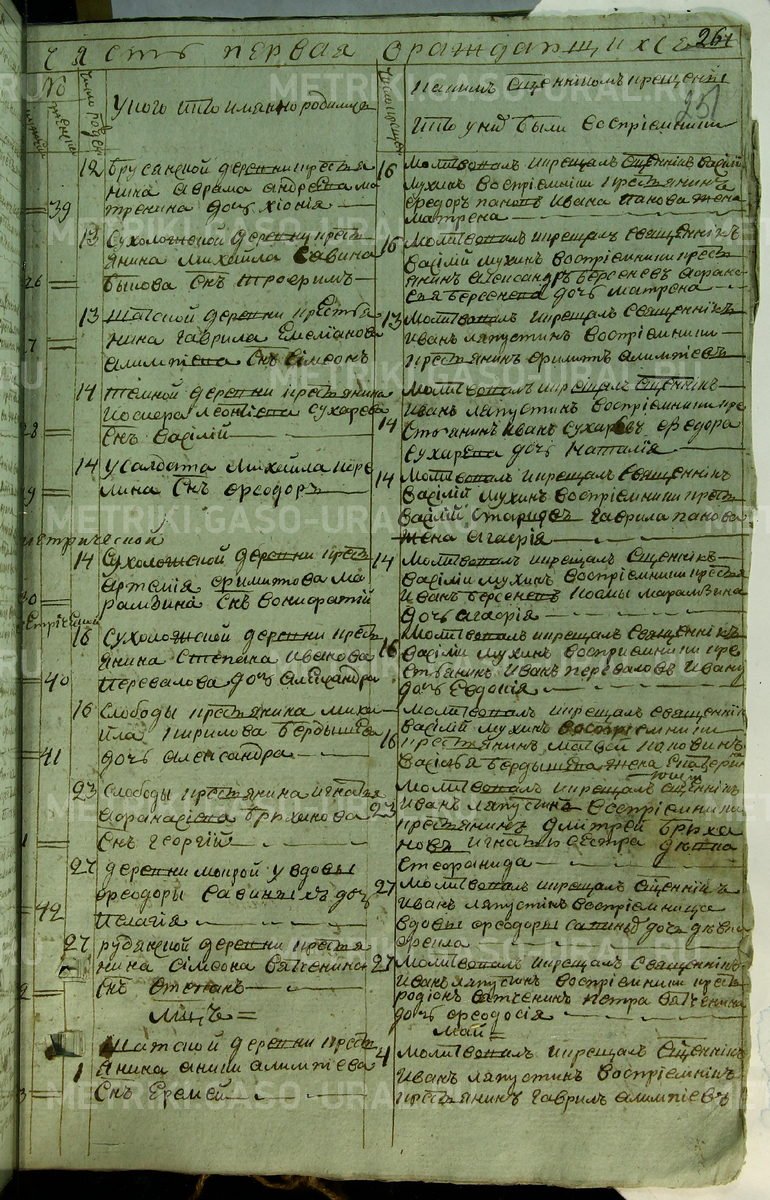 часть первая ораждающихся
264
251
№
мужеска
женска
число родов
У кого кто имянно родился
число крещен
Какимъ священникомъ крещены
и кто у них были восприемники
39
12
Брусянской деревни крестья
нина Аврама Андреева Ма
тренина дочь Хіонія
16
Молитвовалъ и крещалъ священникъ Василій
Мухинъ восприемники крестьянинъ
Феодоръ Пановъ Ивана Панова жена
Матрена
26
13
Сухоложской деревни кресть
янина Михайла Савина
Быкова сынъ Трофимъ
16
Молитвовалъ и крещалъ священникъ
Василій Мухинъ восприемники кресть
янинъ Александръ Берсеневъ Афана
сья Берсенева дочь Матрена
27
13
Шатской деревни крестья
нина Гаврила Емеліанова
Алимпіева сынъ Сімеонъ
13
Молитвовалъ и крещалъ священникъ
Иванъ Ляпустинъ восприемники
крестьянинъ Филиппъ Алимпіевъ
28
14
Темной деревни крестьянина
Иосифа Леонтіева Сухарева
сынъ Василій
14
Молитвовалъ и крещалъ священникъ
Иванъ Ляпустинъ восприемники кре
стьянинъ Иванъ Сухаревъ Феодора
Сухарева дочь Наталія
29
14
У солдата Михайла Кере
мина сынъ Феодоръ
14
Молитвовалъ и крещалъ священникъ
Василій Мухинъ восприемники кресть
Василій Стариковъ Гаврила Панова
жена Агафія
метрической
30
14
Сухоложской деревни кресть
Артемія Филиппова Ма
рамзина сынъ Вонифатій
14
Молитвовалъ и крещалъ священникъ
Василій Мухинъ восприемники крестья
Иванъ Берсеневъ Козмы Марамзина
дочь Агафія
40
16
Сухоложской деревни кресть
янина Степана Иванова
Перевалова дочь Александра
16
Молитвовалъ и крещалъ священникъ
Василій Мухинъ восприемники кре
стьянинъ Иванъ Переваловъ Ивану
дочь Евдокія
41
16
Слободы крестьянина Миха
йла Кирилова Бердышева
дочь Александра
16
Молитвовалъ и крещалъ священникъ
Василій Мухинъ восприемники
крестьянинъ Матвей Поповинъ
Василья Бердышева жена Екатерин
1
23
Слободы крестьянина Игнатья
Афанасіева Брюханова
сынъ Георгій
23
Молитвовалъ и крещалъ священникъ
Иванъ Ляпустинъ восприемники
крестьянинъ Дмитрей Брюха
новъ Стефанида
42
27
Деревни Мокрой у вдовы
Феодоры Савиныхъ дочь
Пелагія
27
Молитвовалъ и крещалъ священникъ
Иванъ Ляпустинъ восприемница
вдовы Феодоры дочь девка
2
27
Рудянской деревни крестья
нина Сімеона Вятченина
сынъ Стефанъ
27
Молитвовалъ и крещалъ священникъ
Иванъ Ляпустинъ восприемники кресть
Родіонъ Вятченинъ Петра Вятченина
дочь Феодосія
Маій
Май
3
1
Шатской деревни кресть
янина Алимпіева
сынъ Еремей
4
Молитвовалъ и крещалъ священникъ
Иванъ Ляпустинъ восприемникъ
крестьянинъ Гаврилъ Алимпіевъ
METRIKI.GASO-URAL.RU